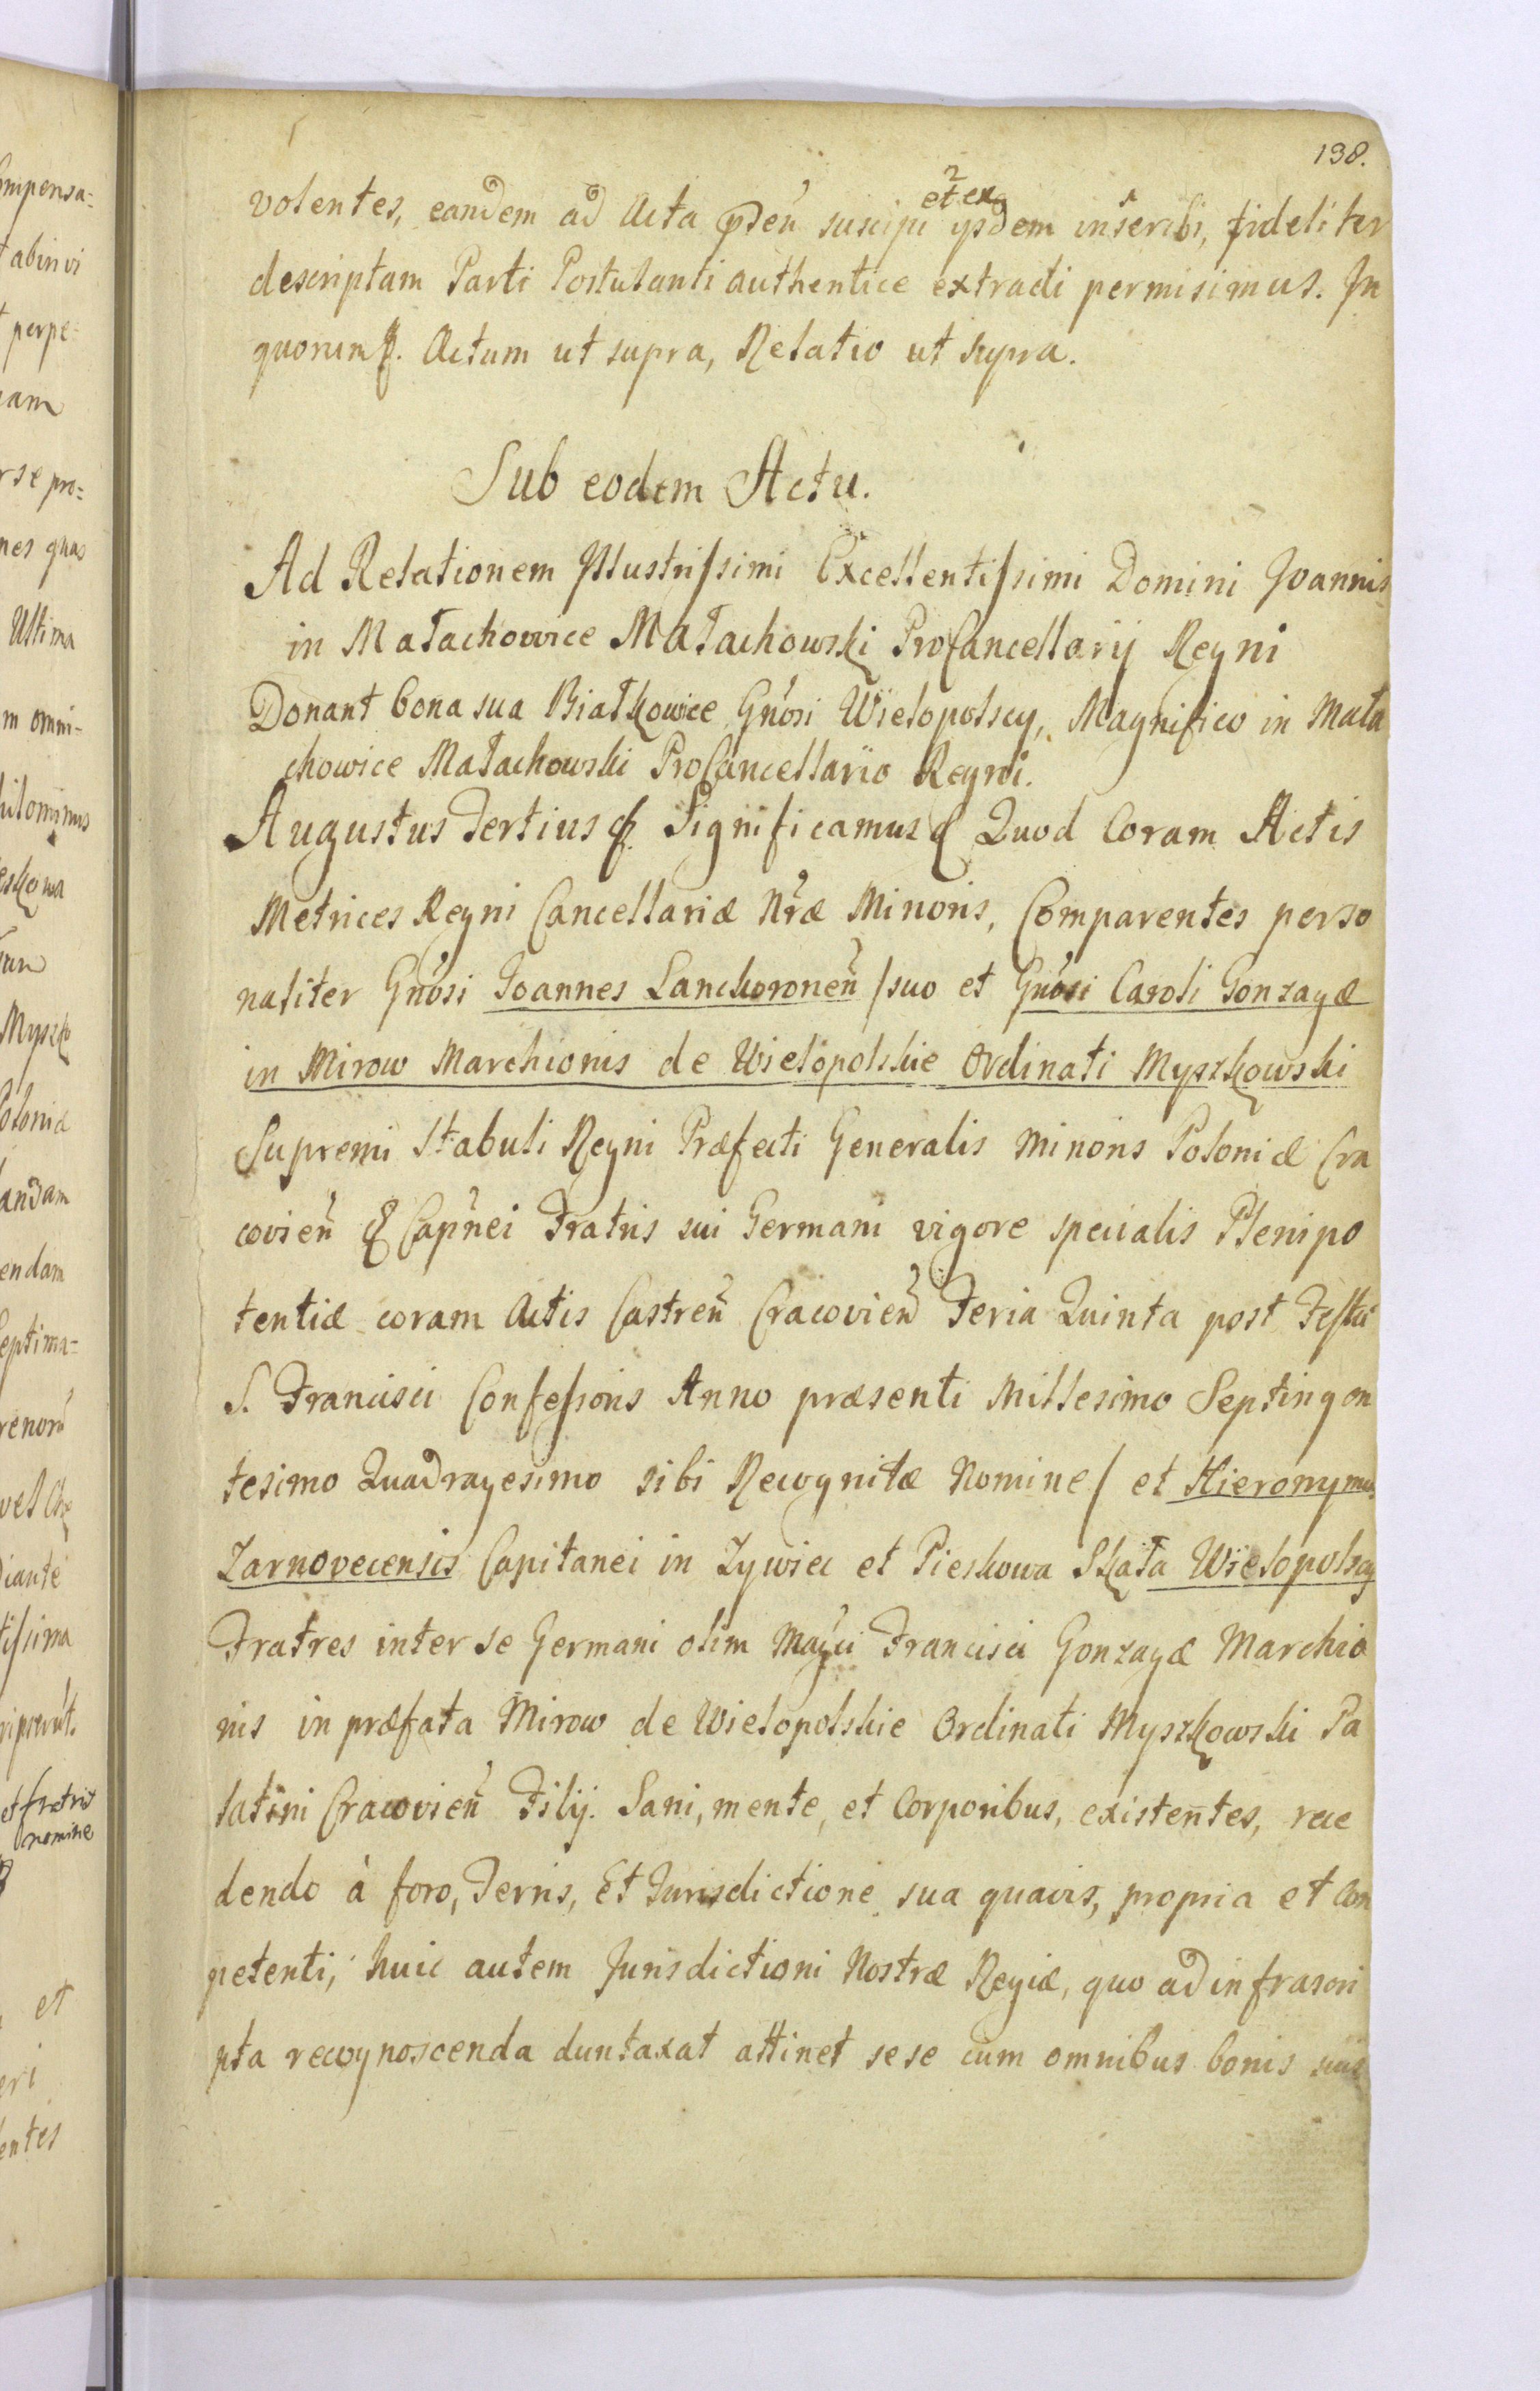 138.
volentes, eandem ad Acta pñten̄ suscipi et ex ijsdem inscribi, fideliter
descriptam Parti Postulanti authentice extradi permisimus. In
quorum &. Actum ut supra, Relatio ut supra.
Sub eodem Actu.
Ad Relationem Illustrissimi Excellentissimi Domini Joannis
in Małachowice Małachowski ProCancellarij Regni
Donant bona sua Białkowice Gn̄osi Wielopolscy, Magnifico in Mała
chowice Małachowski ProCancellario Regni.
Augustus Tertius &. Significamus & Quod Coram Actis
Metrices Regni Cancellariæ Nr̄æ Minoris, Comparentes perso
naliter Gn̄osi Joannes Lanckoronen̄ /suo et Gn̄osi Caroli Gonzagæ
in Mirow Marchionis de Wielopolskie Ordinati Myszkowski
Supremi Stabuli Regni Præfecti Generalis Minoris Poloniæ Cra
covien̄ & Capn̄ei Fratris sui Germani vigore specialis Plenipo
tentiæ coram Actis Castren̄ Cracovien̄ Feria Quinta post Festū
S. Francisci Confessoris Anno præsenti Millesimo Septingen
tesimo Quadragesimo sibi Recognitæ Nomine/ et Hieronymus
Zarnovecensis Capitanei in Zywiec et Pieskowa Skała Wielopolscy
Fratres inter se Germani olim Magci Francisci Gonzagæ Marchio
nis in præfata Mirow de Wielopolskie Ordinati Myszkowski Pa
latini Cracovien̄ Filij. Sani, mente, et Corporibus, existentes, rece
dendo à foro, Terris, Et Jurisdictione sua quavis, propria et Com
petenti, huic autem Jurisdictioni Nostræ Regiæ, quo ad infrascri
pta recognoscenda duntaxat attinet sese cum omnibus bonis suis